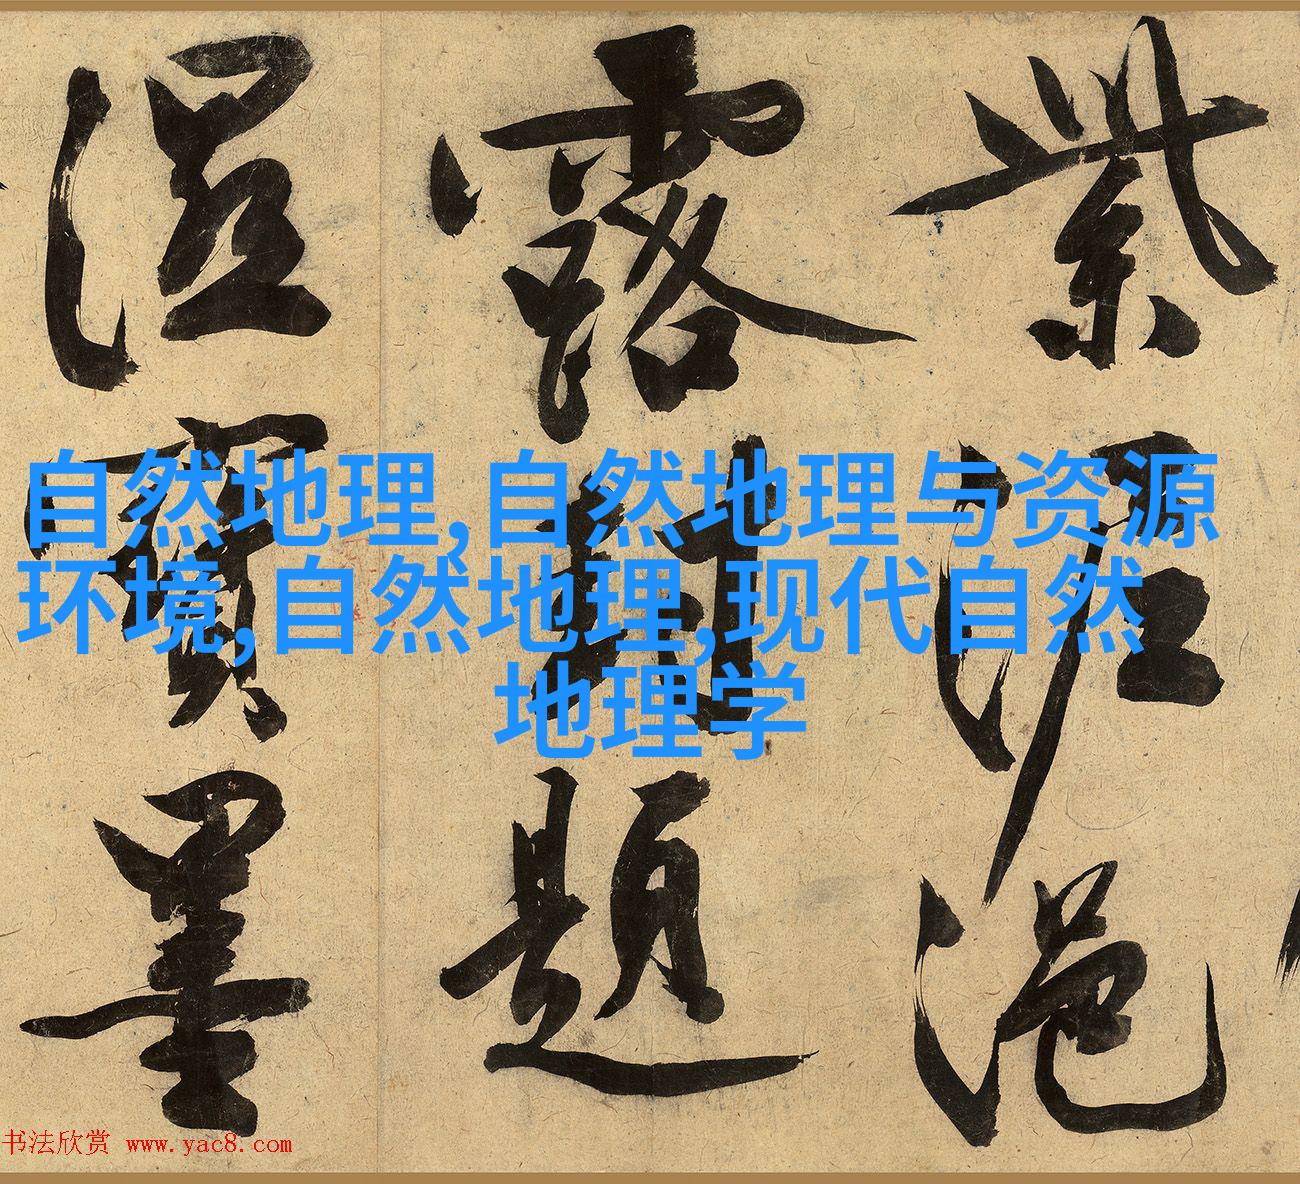 紫泥浥
露封題
濕寶墨
自然地理,自然地理与资源
环境,自然地理,现代自然
地理学
书法欣赏 www.yac8.com